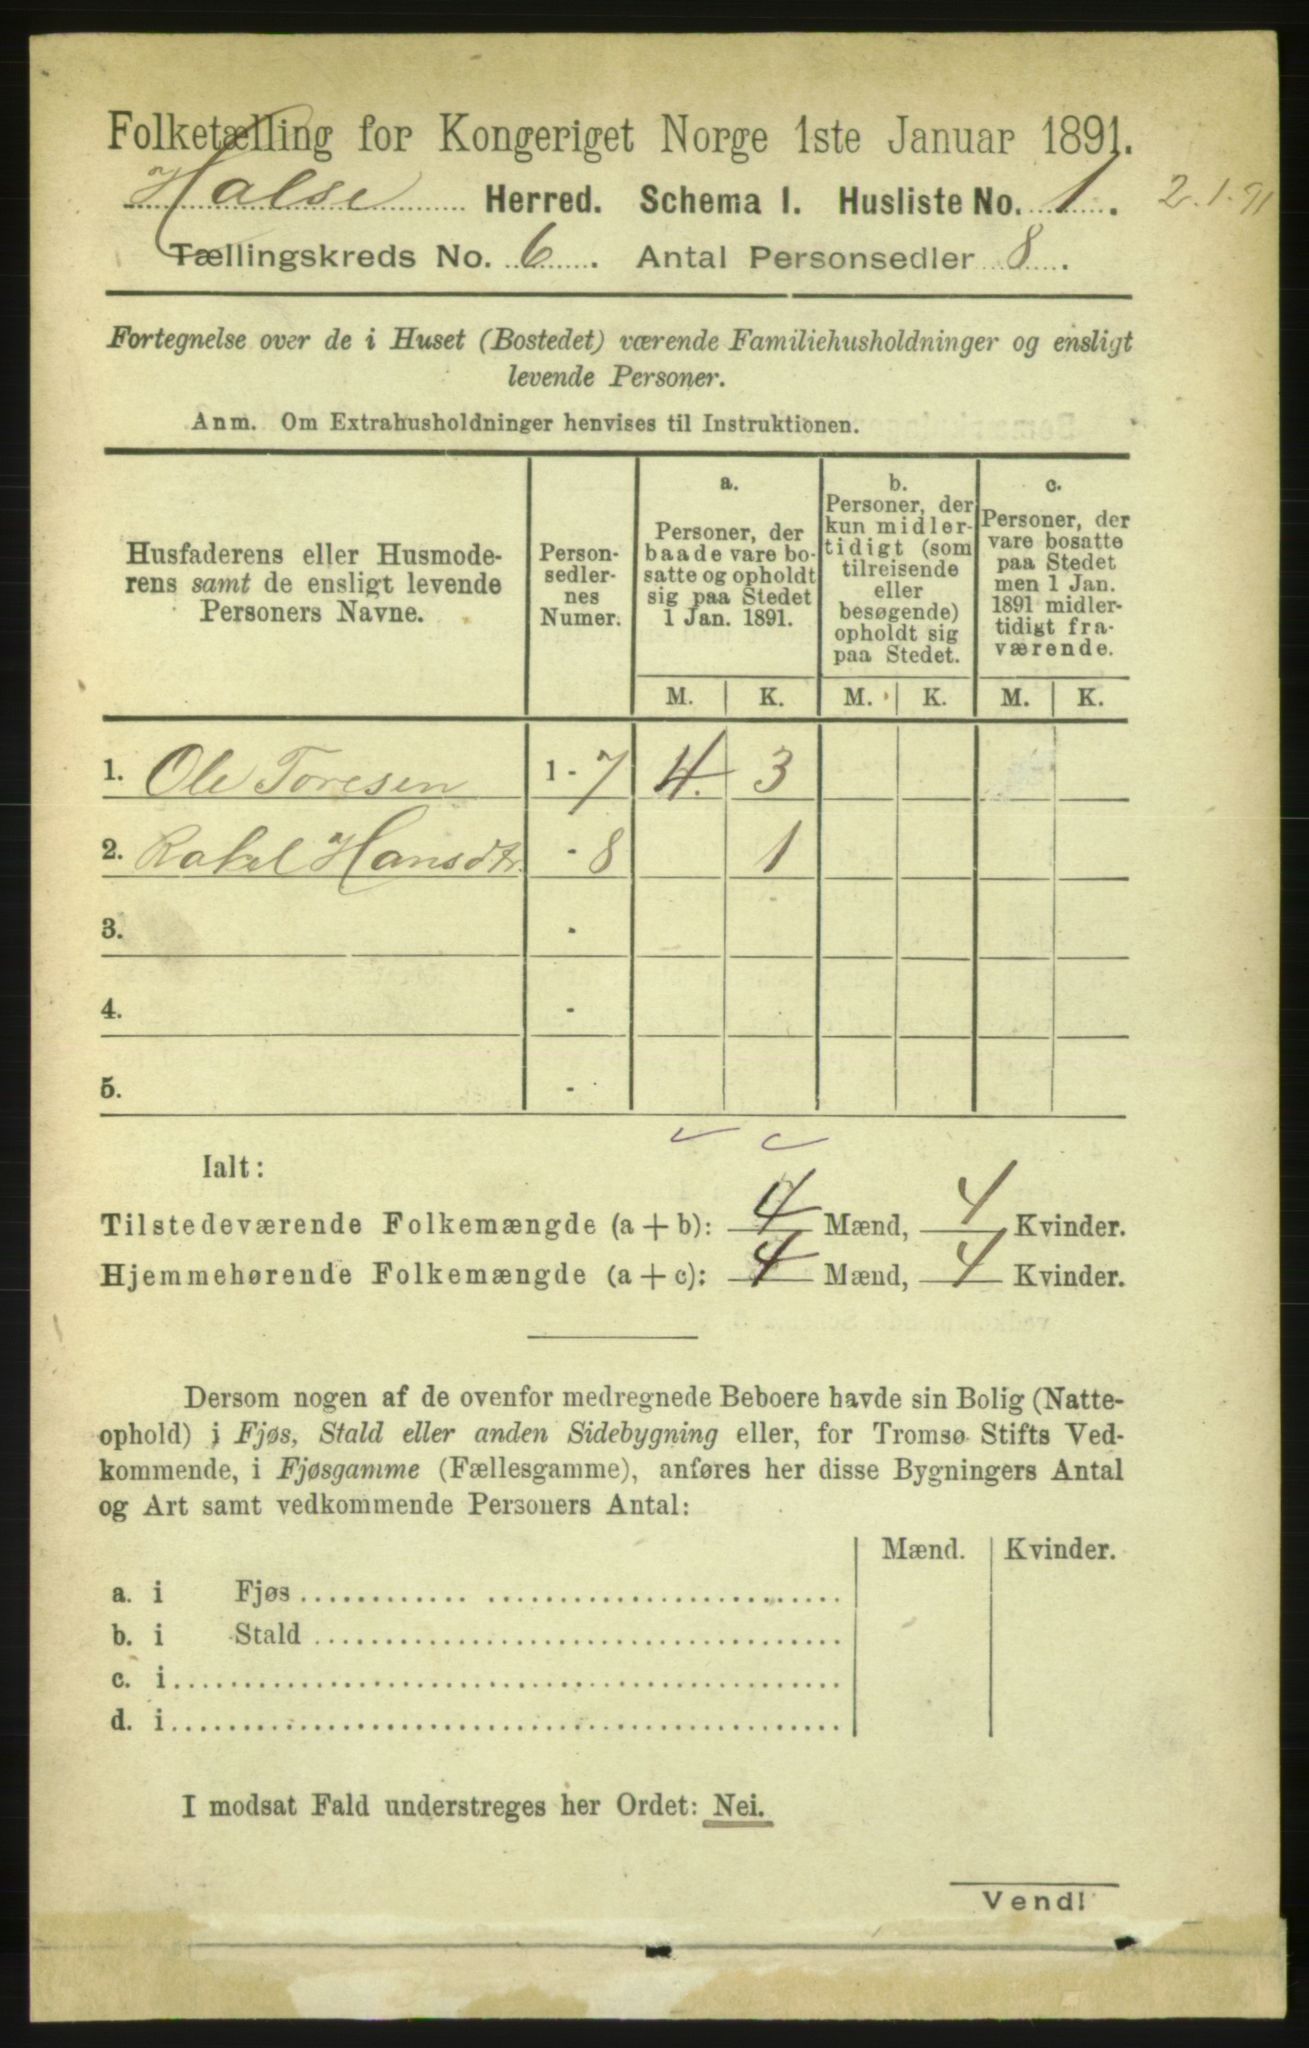 Folketælling for Kongeriget Norge 1ste Januar 1891.
Halse Herred. Schema I. Husliste No. 1. 2.1.91
Tællingskreds No. 6. Antal Personsedler 8.
Fortegnelse over de i Huset (Bostedet) værende Familiehusholdninger og ensligt
levende Personer.
Anm. Om Extrahusholdninger henvises til Instruktionen.
Husfaderens eller Husmode-
rens samt de ensligt levende
Personers Navne.
Person-
sedler-
nes
Numer.
a.
Personer, der
baade vare bo-
satte og opholdt
sig paa Stedet
1 Jan. 1891.
b.
Personer, der
kun midler-
tidigt (som
tilreisende
eller
besøgende)
opholdt sig
paa Stedet.
c.
Personer, der
vare bosatte
paa Stedet
men 1 Jan.
1891 midler-
tidigt fra-
værende.
M. K. M. K. M. K.
1. Ole Toresen 1-7 4. 3
2. Rakel Hansdtr. - 8 1
3. -
4. -
5. -
Ialt:
Tilstedeværende Folkemængde (a + b): 4 Mænd, 4 Kvinder.
Hjemmehørende Folkemængde (a + c): 4 Mænd, 4 Kvinder.
Dersom nogen af de ovenfor medregnede Beboere havde sin Bolig (Natte-
ophold) i Fjøs, Stald eller anden Sidebygning eller, for Tromsø Stifts Ved-
kommende, i Fjøsgamme (Fællesgamme), anføres her disse Bygningers Antal
og Art samt vedkommende Personers Antal:
Mænd. Kvinder.
a. i Fjøs
b. i Stald
c. i
d. i
I modsat Fald understreges her Ordet: Nei.
Vend!